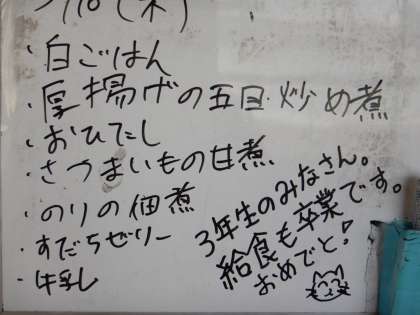 /10(木)
・白ごはん
・厚揚げの五目炒め煮
・おひたし
・さつまいもの甘煮
・のりの佃煮
・すだちゼリー
・牛乳
3年生のみなさん。
給食も卒業です。
おめでと!